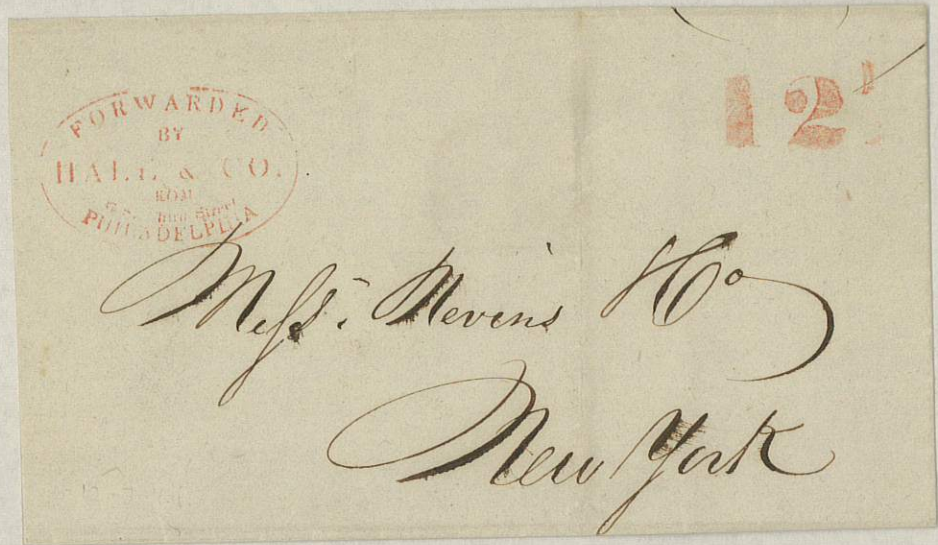 FORWARDED
BY
HALL & CO.
FROM
Third Street
PHILADELPHIA
12½
Messrs. Nevins & Co
New York